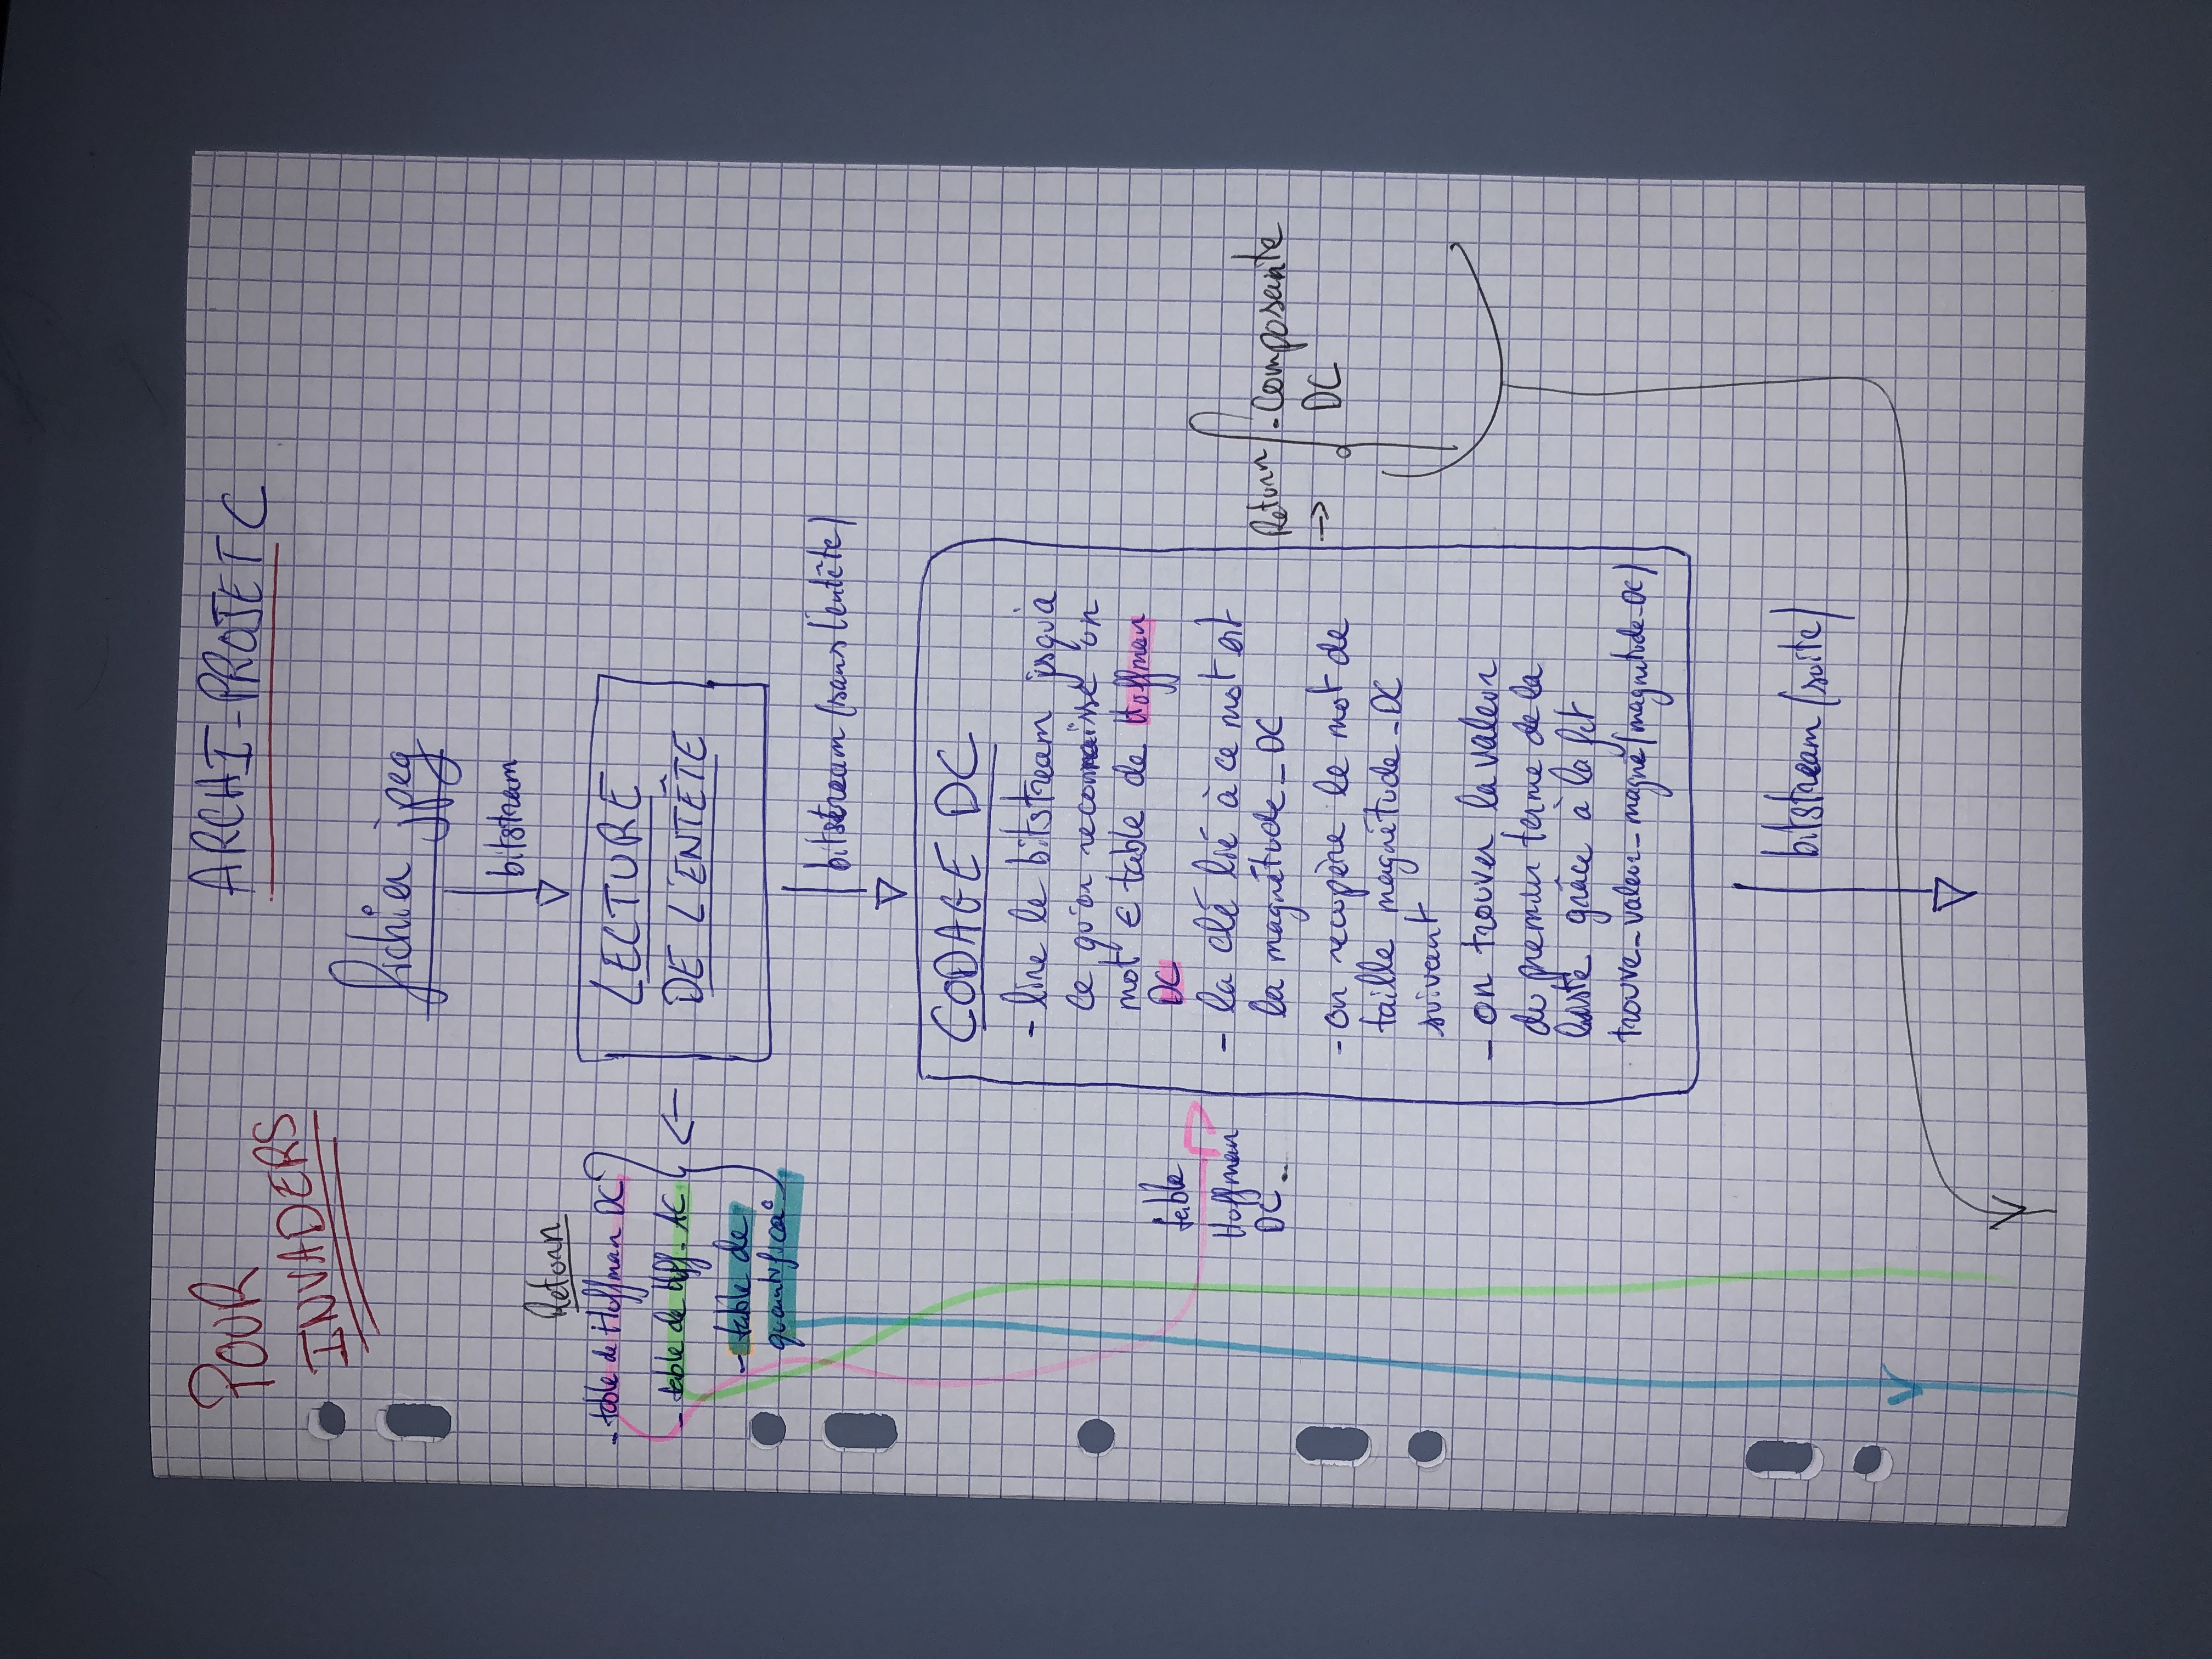 POUR
INVADERS
ARCHI-PROJET C
fichier jpeg
bitstream
Retorn
- table de Hoffman DC
- table de Hoff. AC
- table de
quantifica°
LECTURE
DE L'ENTÊTE
bitstream (sans l'entête)
CODAGE DC
- lire le bitstream jsqu'à
ce qu'on reconnaisse un
mot ∈ table de Hoffman
DC
- la clé lié à ce mot est
la magnétude_DC
- on recupère le mot de
taille magnétude_DC
suivant
- on trouver la valeur
du premier terme de la
liste grâce à la fct
trouve_valeur_magne(magnetude_DC)
table
Hoffman
DC_
Return
→
- Composante
DC
bitstream (suite)